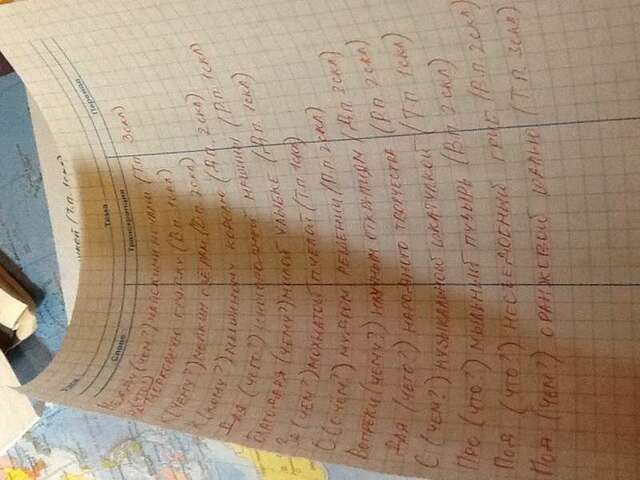 чкой (Т.п. 1скл)
Тема
Слово Транскрипция Перевод
Между (чем?) майскими ночами (Тп 3скл)
(что?) морковную грядку (В.п. 1скл)
К (чему?) мелким озёрам (Д.п. 2скл)
К (кому?) мышиному королю (Д.п. 2скл)
Для (чего?) иногородней машины (Р.п. 1скл)
Благодаря (чему?) милой улыбке (Д.п. 1скл)
За (чем?) мохнатой пчелой (Т.п. 1скл)
О (о чём?) мудром решении (П.п 2скл)
Вопреки (чему?) научным открытиям (Дп 2скл)
Для (чего?) народного творчества (Р.п 2скл)
С (чем?) музыкальной шкатулкой (Тп 1скл)
Про (что?) мыльный пузырь (В.п 2скл)
Под (что?) несъедобный гриб (В.п. 2скл)
Под (чем?) оранжевой шалью (Т.п. 3скл)